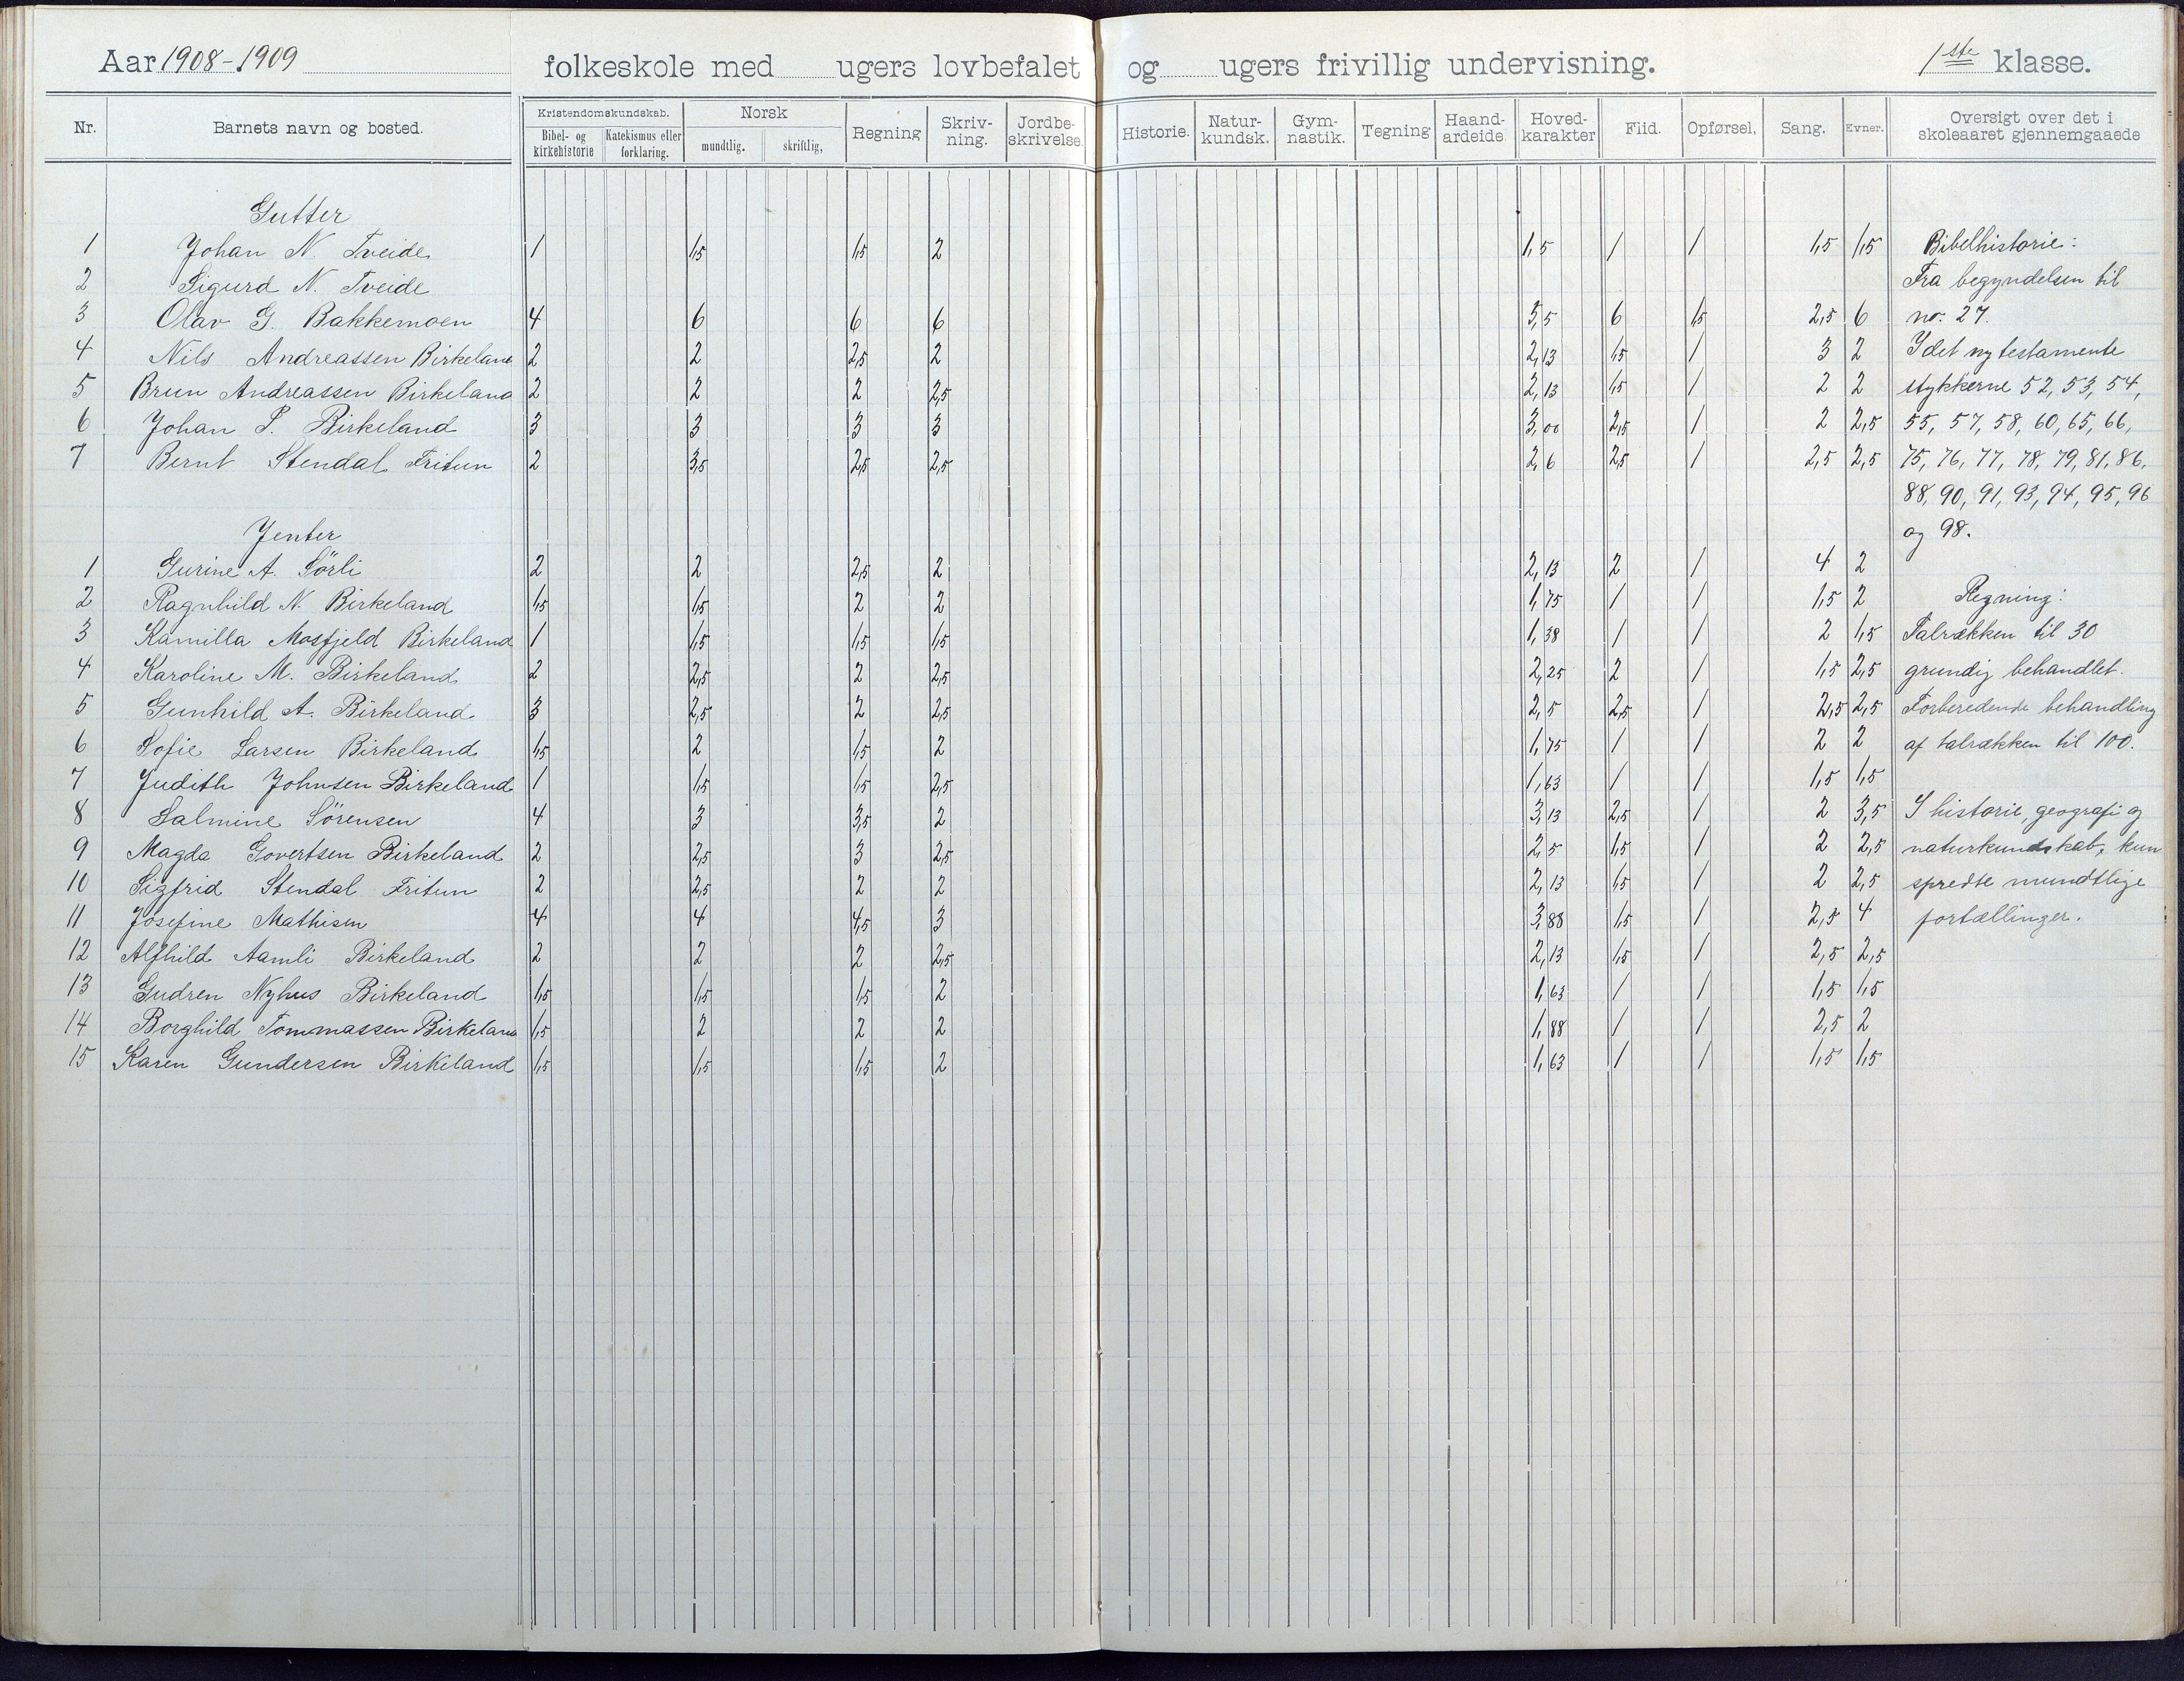 Aar 1908-1909 folkeskole med ugers lovbefalet og ugers frivillig undervisning. 1ste klasse.
Nr. Barnets navn og bosted. Kristendomskundskab. Bibel- og kirkehistorie Katekismus eller forklaring. Norsk mundtlig. skriftlig, Regning Skriv-ning. Jordbe-skrivelse. Historie. Natur-kundsk. Gym-nastik. Tegning Haand-arbeide. Hoved-karakter Flid. Opførsel, Sang. Evner. Oversigt over det i skoleaaret gjennemgaaede
Gutter
1 Johan N. Tveide 1 1,5 1,5 2 1,5 1 1 1,5 1,5 Bibelhistorie:
2 Sigurd N. Tveide Fra begyndelsen til
3 Olav G. Bakkemoen 4 6 6 6 5,5 6 1,5 2,5 6 no. 27.
4 Nils Andreassen Birkeland 2 2 2,5 2 2,13 1,5 1 3 2 I det ny testamente
5 Brun Andreassen Birkeland 2 2 2 2,5 2,13 1,5 1 2 2 stykkerne 52, 53, 54,
6 Johan P. Birkeland 3 3 3 3 3,00 2,5 1 2 2,5 55, 57, 58, 60, 65, 66,
7 Bernt Stendal Fritun 2 3,5 2,5 2,5 2,6 2,5 1 2,5 2,5 75, 76, 77, 78, 79, 81, 86,
88, 90, 91, 93, 94, 95, 96
Jenter og 98.
1 Gurine A. Sörli 2 2 2,5 2 2,13 2 1 4 2
2 Ragnhild N. Birkeland 1,5 1,5 2 2 1,75 1 1 1,5 2 Regning:
3 Kamilla Mosfjeld Birkeland 1 1,5 1,5 1,5 1,38 1 1 2 1,5 Talrækken til 30
4 Karoline M. Birkeland 2 2,5 2 2,5 2,25 2 1 1,5 2,5 grundig behandlet.
5 Gunhild A. Birkeland 3 2,5 2 2,5 2,5 2,5 1 2,5 2,5 Forberedende behandling
6 Sofie Larsen Birkeland 1,5 2 1,5 2 1,75 1 1 2 2 af talrækken til 100.
7 Judith Johnsen Birkeland 1 1,5 1,5 2,5 1,63 1 1 1,5 1,5
8 Salmine Sörensen 4 3 3,5 2 3,13 2,5 1 2 3,5 I historie, geografi og
9 Magda Govertsen Birkeland 2 2,5 3 2,5 2,5 1,5 1 2 2,5 naturkundskab, kun
10 Sigfrid Stendal Fritun 2 2,5 2 2 2,13 1,5 1 2 2,5 spredte mundtlige
11 Josefine Mathisen 4 4 4,5 3 3,88 1,5 1 2,5 4 fortællinger.
12 Alfhild Aamli Birkeland 2 2 2 2,5 2,13 1,5 1 2,5 2,5
13 Gudren Nyhus Birkeland 1,5 1,5 1,5 2 1,63 1 1 1,5 1,5
14 Borghild Tommassen Birkeland 1,5 2 2 2 1,88 1 1 2,5 2
15 Karen Gundersen Birkeland 1,5 1,5 1,5 2 1,63 1 1 1,5 1,5